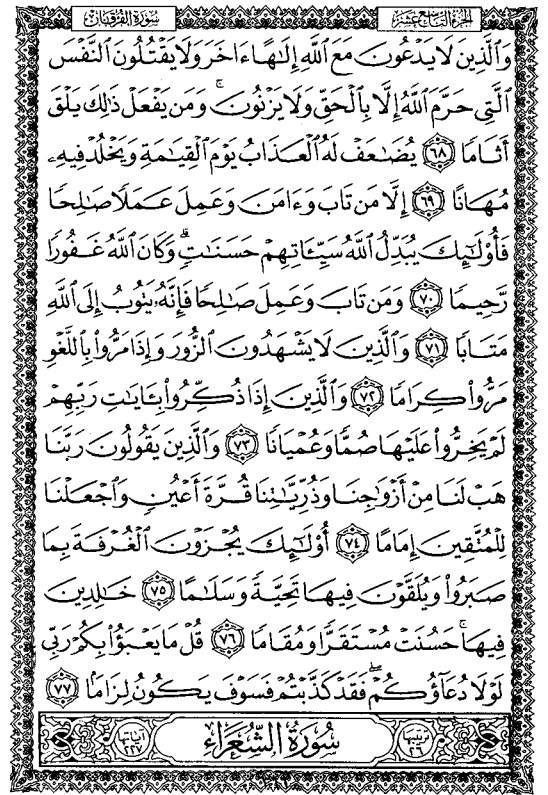 سُورَةُ الفُرْقَانِ الجُزْءُ التَّاسِعَ عَشَرَ
وَٱلَّذِينَ لَا يَدْعُونَ مَعَ ٱللَّهِ إِلَٰهًا ءَاخَرَ وَلَا يَقْتُلُونَ ٱلنَّفْسَ
ٱلَّتِي حَرَّمَ ٱللَّهُ إِلَّا بِٱلْحَقِّ وَلَا يَزْنُونَ ۚ وَمَن يَفْعَلْ ذَٰلِكَ يَلْقَ
أَثَامًا ٦٨ يُضَٰعَفْ لَهُ ٱلْعَذَابُ يَوْمَ ٱلْقِيَٰمَةِ وَيَخْلُدْ فِيهِۦ
مُهَانًا ٦٩ إِلَّا مَن تَابَ وَءَامَنَ وَعَمِلَ عَمَلًا صَٰلِحًا
فَأُو۟لَٰٓئِكَ يُبَدِّلُ ٱللَّهُ سَيِّـَٔاتِهِمْ حَسَنَٰتٍ ۗ وَكَانَ ٱللَّهُ غَفُورًا
رَّحِيمًا ٧٠ وَمَن تَابَ وَعَمِلَ صَٰلِحًا فَإِنَّهُۥ يَتُوبُ إِلَى ٱللَّهِ
مَتَابًا ٧١ وَٱلَّذِينَ لَا يَشْهَدُونَ ٱلزُّورَ وَإِذَا مَرُّوا۟ بِٱللَّغْوِ
مَرُّوا۟ كِرَامًا ٧٢ وَٱلَّذِينَ إِذَا ذُكِّرُوا۟ بِـَٔايَٰتِ رَبِّهِمْ
لَمْ يَخِرُّوا۟ عَلَيْهَا صُمًّا وَعُمْيَانًا ٧٣ وَٱلَّذِينَ يَقُولُونَ رَبَّنَا
هَبْ لَنَا مِنْ أَزْوَٰجِنَا وَذُرِّيَّٰتِنَا قُرَّةَ أَعْيُنٍ وَٱجْعَلْنَا
لِلْمُتَّقِينَ إِمَامًا ٧٤ أُو۟لَٰٓئِكَ يُجْزَوْنَ ٱلْغُرْفَةَ بِمَا
صَبَرُوا۟ وَيُلَقَّوْنَ فِيهَا تَحِيَّةً وَسَلَٰمًا ٧٥ خَٰلِدِينَ
فِيهَا ۚ حَسُنَتْ مُسْتَقَرًّا وَمُقَامًا ٧٦ قُلْ مَا يَعْبَؤُا۟ بِكُمْ رَبِّي
لَوْلَا دُعَآؤُكُمْ ۖ فَقَدْ كَذَّبْتُمْ فَسَوْفَ يَكُونُ لِزَامًۢا ٧٧
ترتيبها ٢٦ سُورَةُ الشُّعَرَاءِ آياتها ٢٢٧